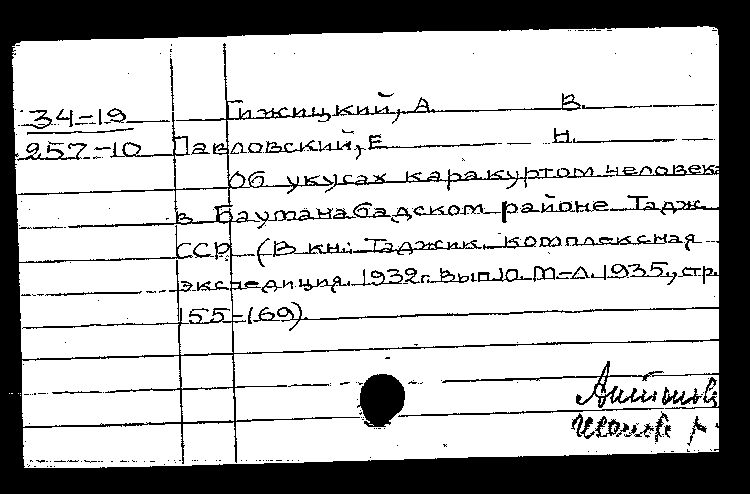 34-19 Гижицкий, А. В.
257-10 Павловский, Е Н.
Об укусах каракуртом человека
в Бауманабадском районе Тадж.
ССР (В кн: Таджик. комплексная
экспедиция. 1932г. Вып.10. М-Л. 1935, стр.
155-169).